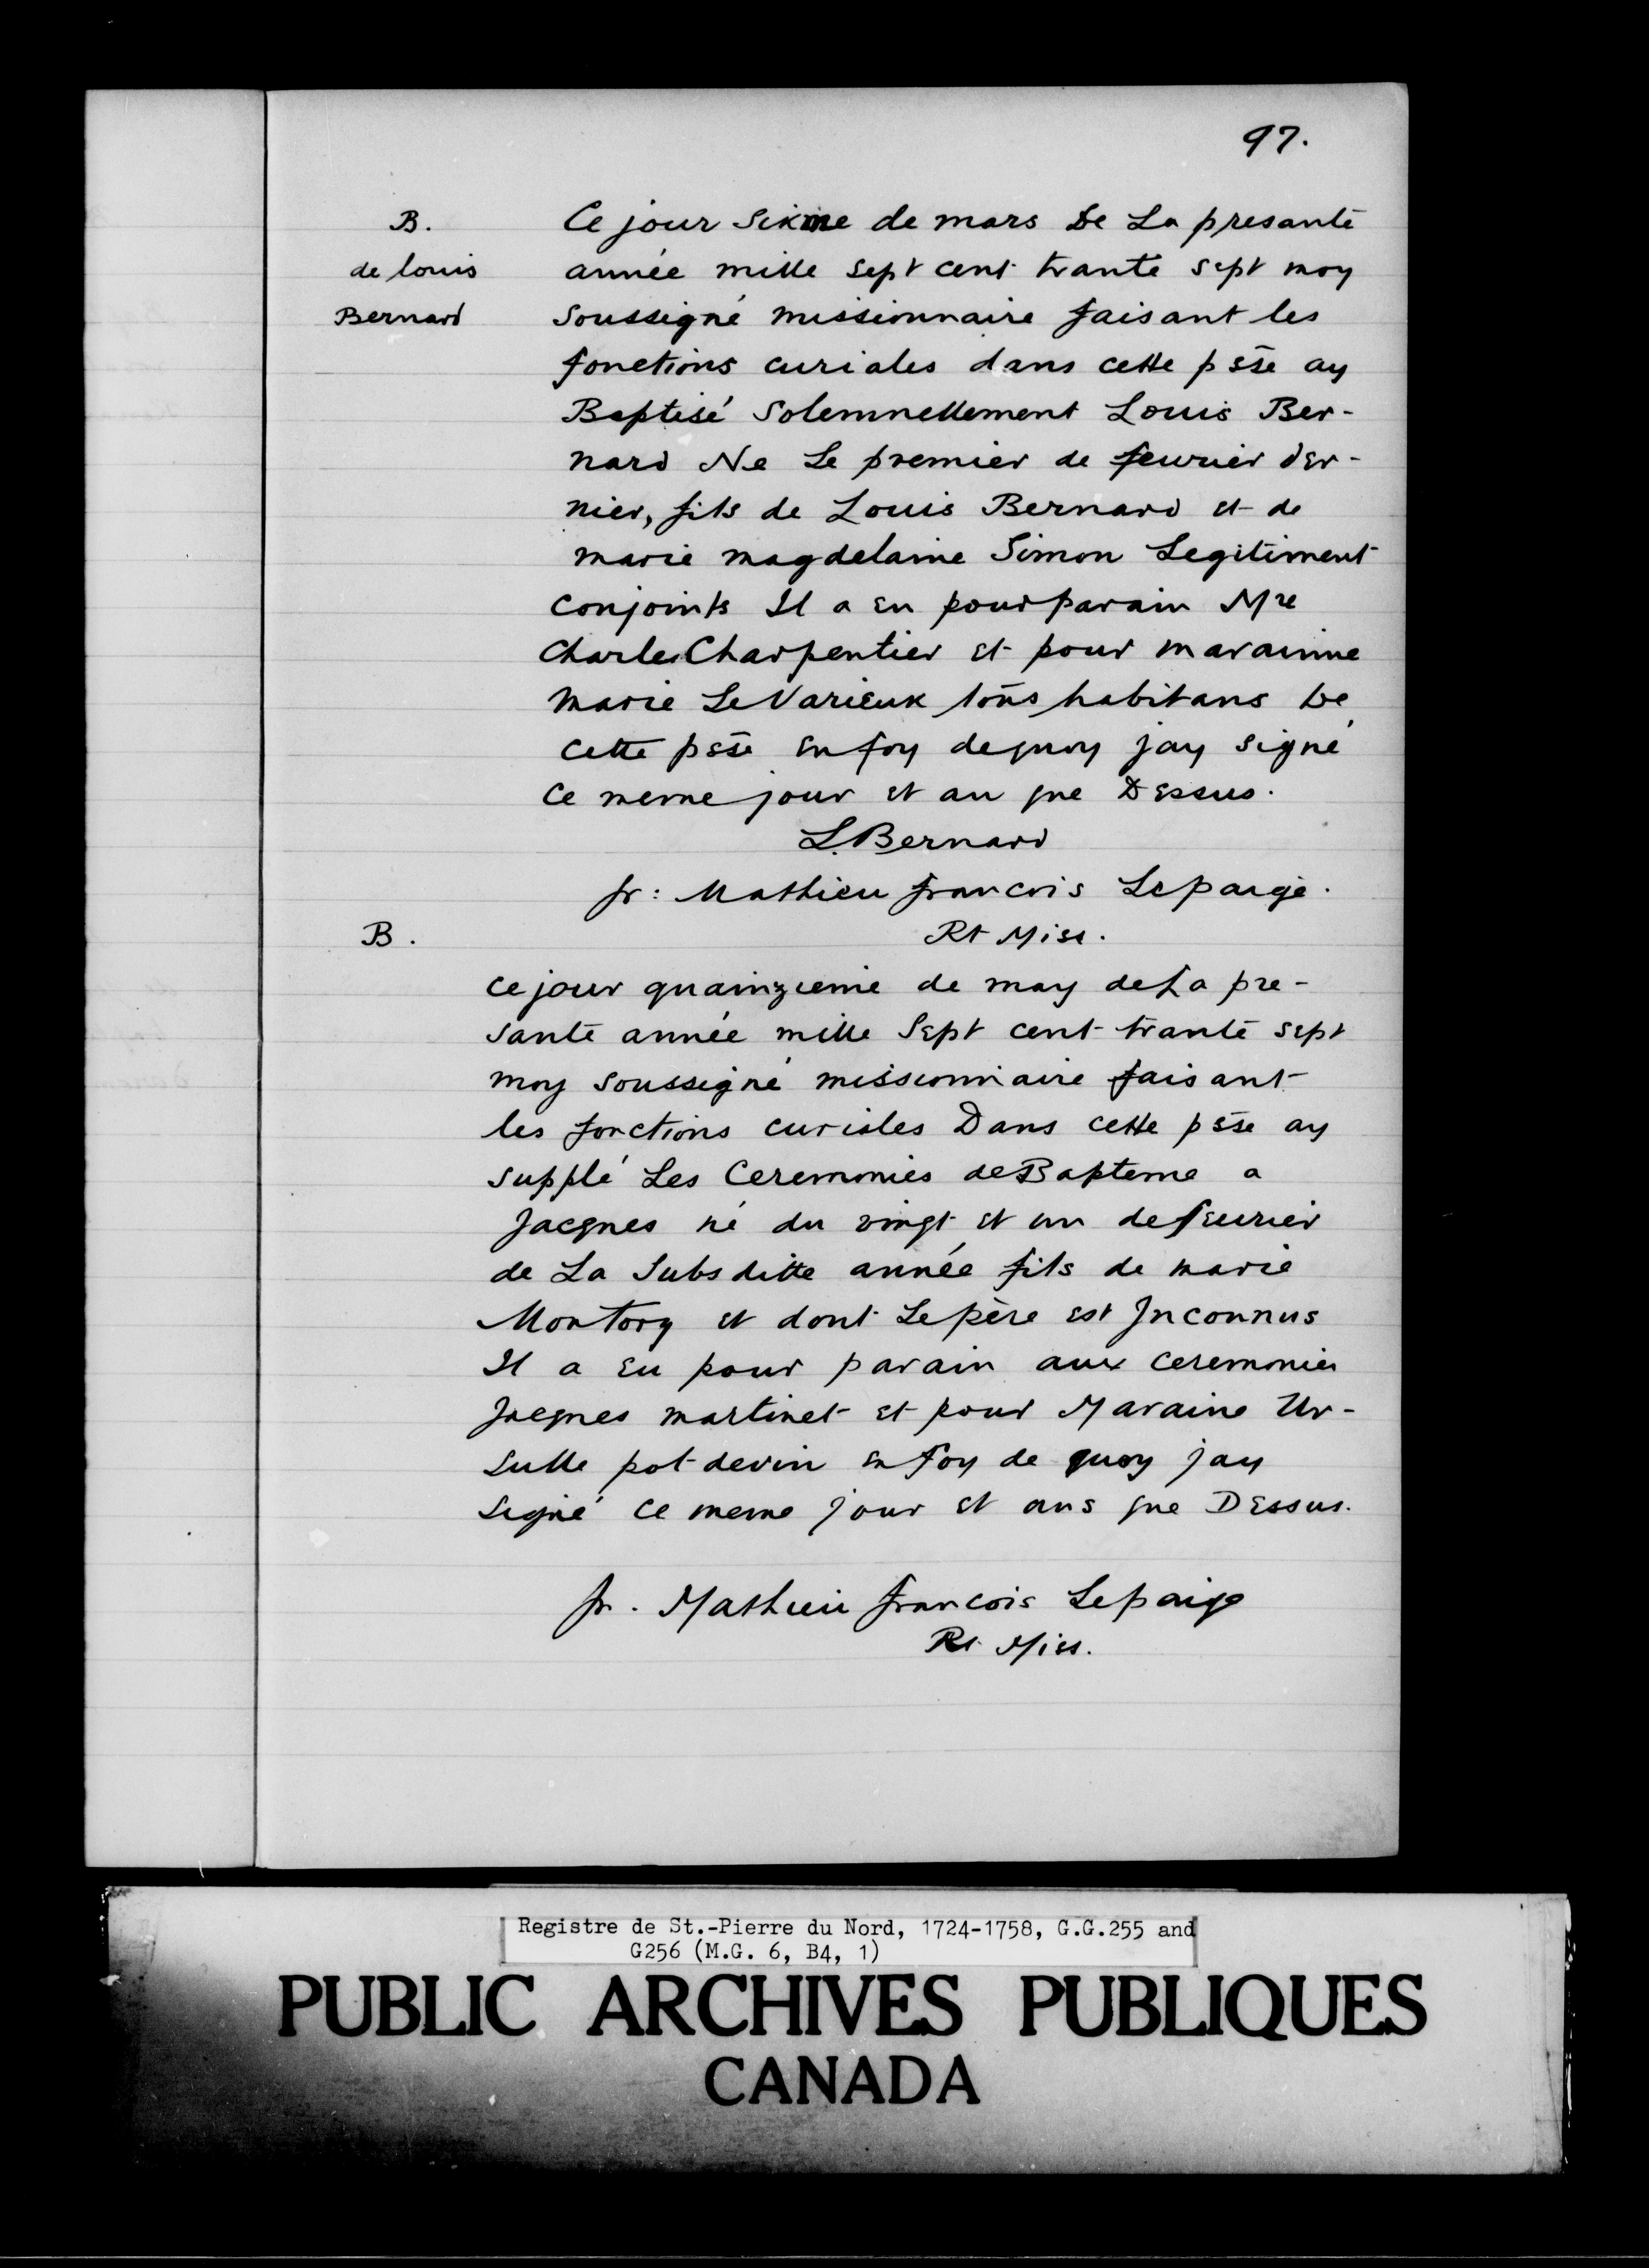 97.
B.
de louis
Bernard
Ce jour Sixme de mars De La presante
année mille sept cent trante sept moy
Soussigné missionnaire faisant les
fonctions curiales dans cette psse ay
Baptisé Solemnellement Louis Ber-
nard Ne Le premier de feurier der-
nier, fils de Louis Bernard et de
marie magdelaine Simon Legitiment
conjoints Il a eu pour parain Mre
Charles Charpentier et pour marainne
marie LeVarieux tous habitans De
cette psse en foy de quoy jay signé
Ce meme jour et an que Dessus.
L. Bernard
fr: Mathieu francois Lepaige.
Rt Miss.
B.
Ce jour quainzieme de may de La pre-
sante année mille Sept cent trante sept
moy soussigné missionnaire faisant
les fonctions curiales Dans cette psse ay
supplé Les Ceremonies de Bapteme a
Jacques né du vingt et un de feurier
de La Subsditte année fils de marie
Montory et dont Le père est Inconnus
Il a eu pour parain aux ceremonies
Jacques martinet et pour Maraine Ur-
sulle pot devin en foy de quoy jay
signé ce meme jour et ans que Dessus.
fr. Mathieu francois Lepaige
Rt Miss.
Registre de St.-Pierre du Nord, 1724-1758, G.G.255 and
G256 (M.G. 6, B4, 1)
PUBLIC ARCHIVES PUBLIQUES
CANADA